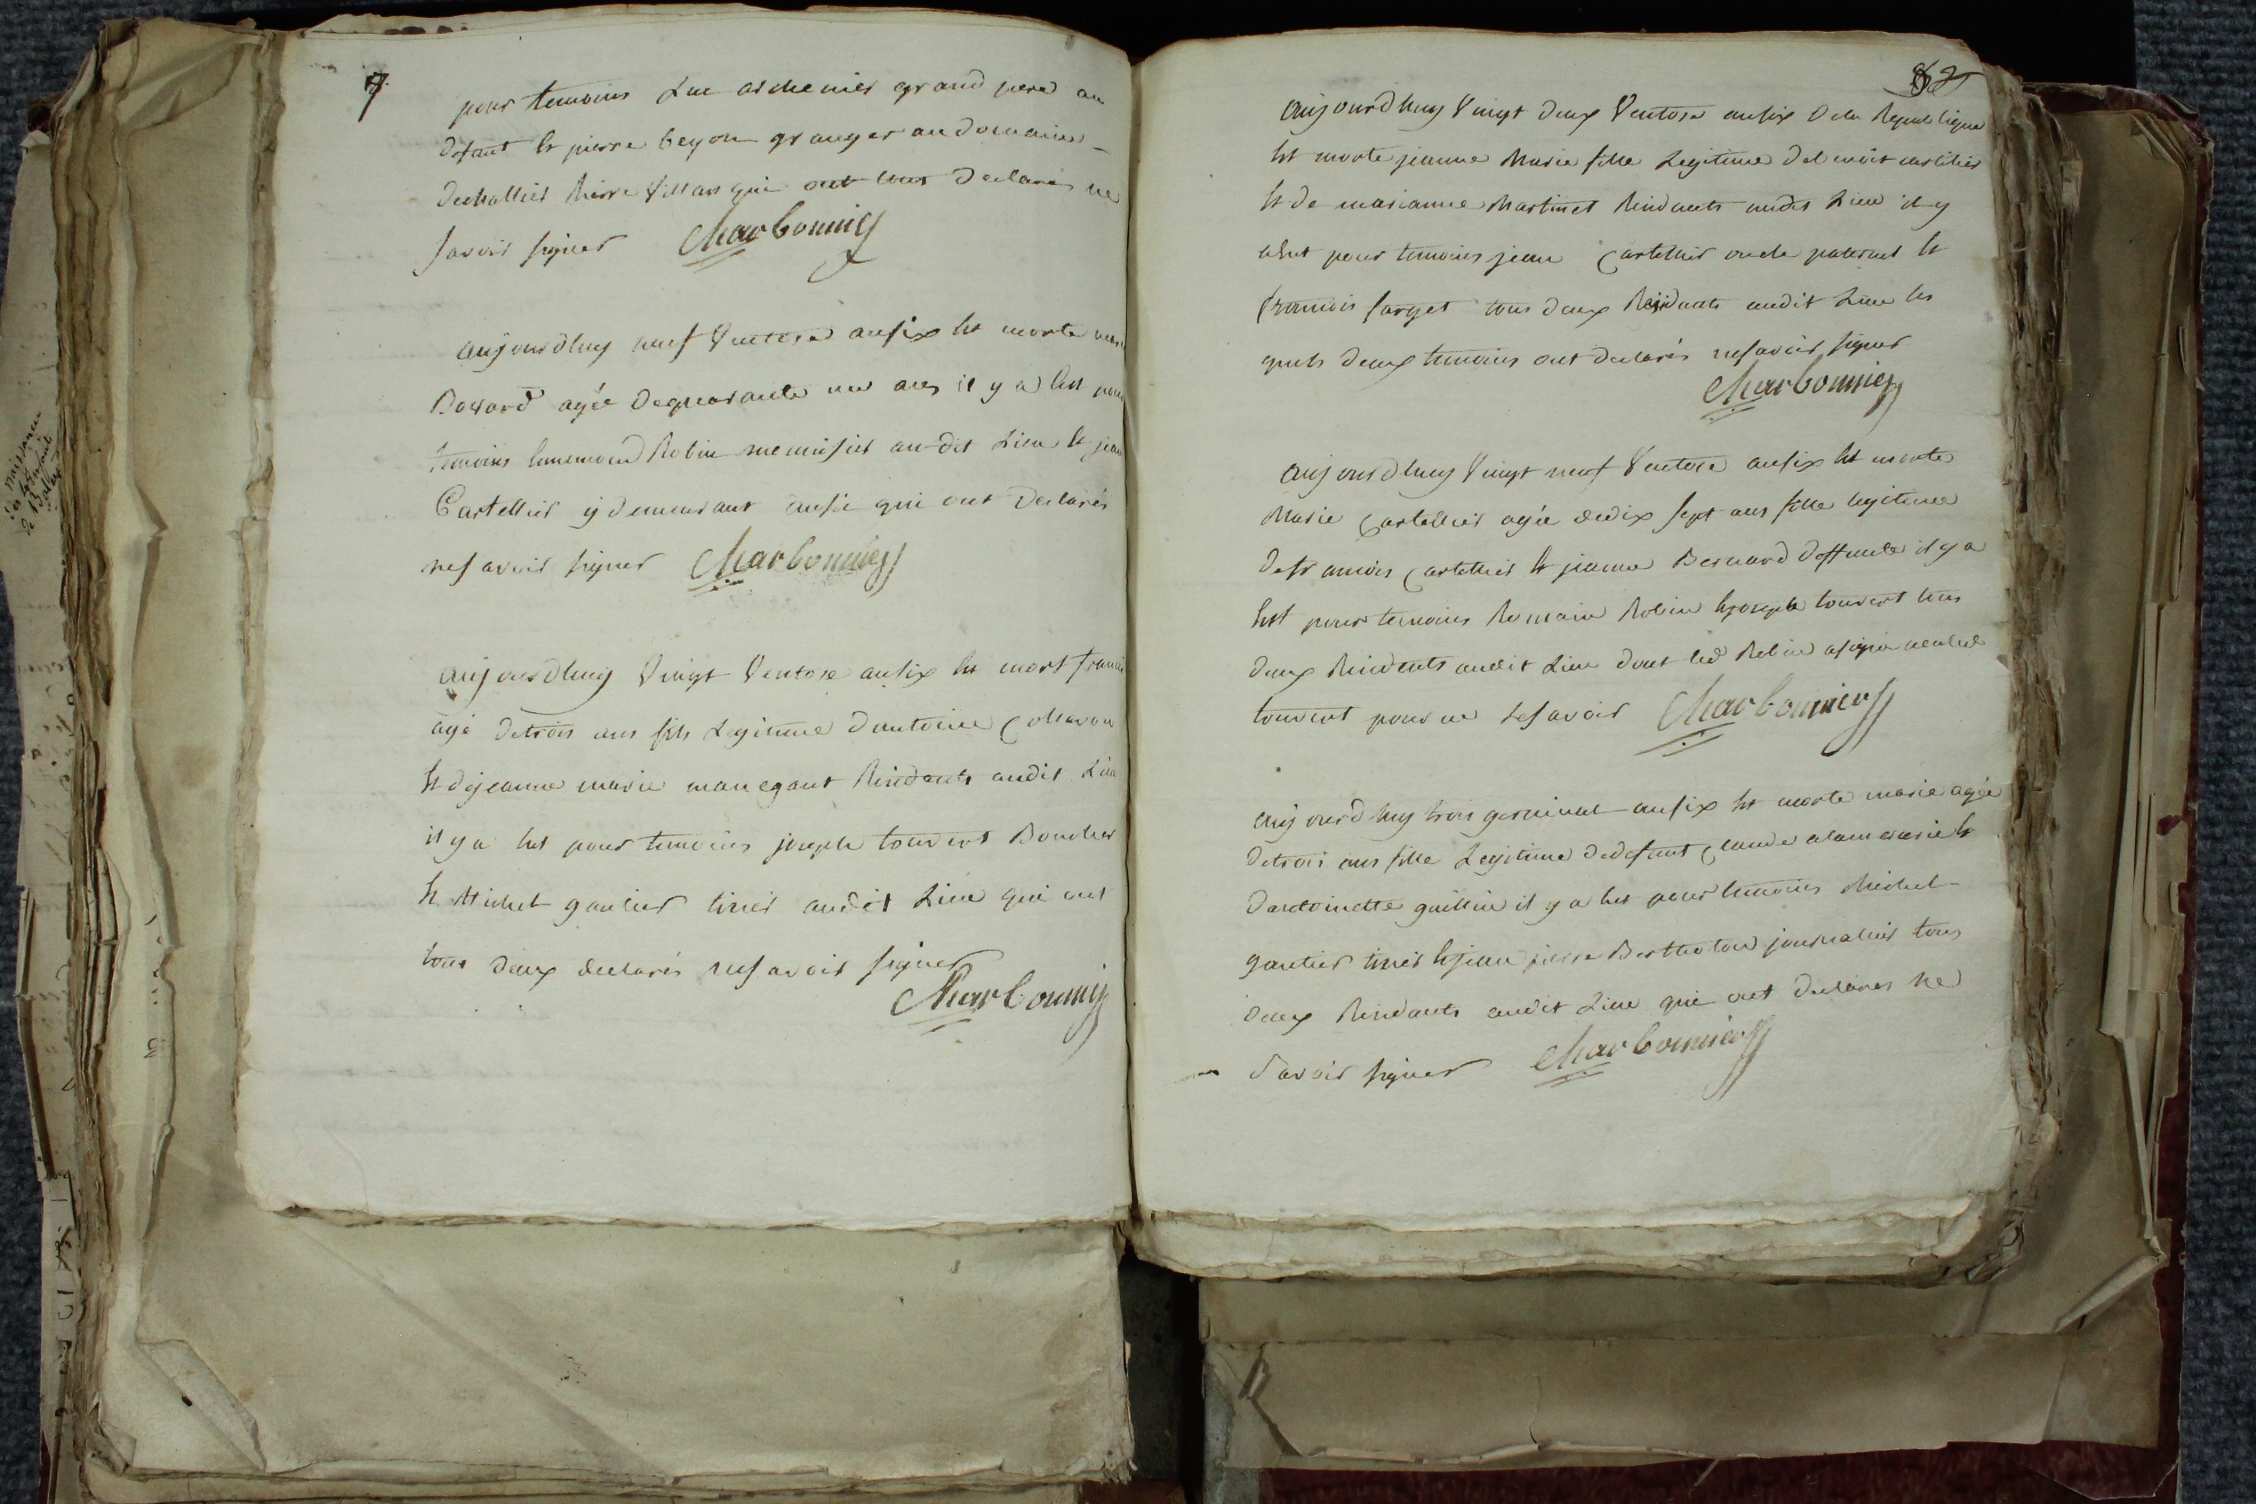 7
pour temoins Luc archenier grand pere au
defunt et pierre beyon granger au domaine
Pierre villars qui ont tous declarés ne
savoir signer Charbonnier
aujourdhuy neuf Ventose ansix est morte
agéé dequarante un ans il y a Eut pour
temoins Ennemond Robin menuisier au dit Lieu et jean
Cartellier y demeurant aussi qui ont declarés
nesavoir signer Charbonnier
aujourdhuy Vingt Ventose ansix est mort
agé detrois ans fils Legitime dantoine
et dejeanne marie Residants audit Lieu
il y a Eut pour temoins joseph touvert Boucher
et Michel gautier audit Lieu qui ont
tous deux declarés nesavoir signer
Charbonnier
82
aujourdhuy Vingt deux Ventose ansix Dela Republique
Est morte jeanne Marie fille Legitime de cartelier
Et de marianne Martinet Residants audit Lieu il y
aEut pour temoins jean Cartellier oncle paternel Et
francois farget tous deux Residants audit Lieu les
quels deux temoins ont declarés nesavoir signer
Charbonnier
aujourdhuy Vingt neuf Ventose ansix Est morte
Marie Cartellier agée dedix sept ans fille legitime
defrancois Cartellier Et jeanne Bernard deffunte il y a
Eut pour temoins Romain Robin Et joseph touvert tous
deux Residents audit Lieu dont led Robin asigné
touvert pour ne Lesavoir Charbonnier
aujourdhuy trois germinal ansix Est morte marie agée
detrois ans fille Legitime dedefunt Claude Et
dantoinette guillin il y a Eut pour temoins Michel
gautier Et jean pierre Bertheton journalier tous
deux Residants audit Lieu qui ont declarés ne
Savoir signer Charbonnier